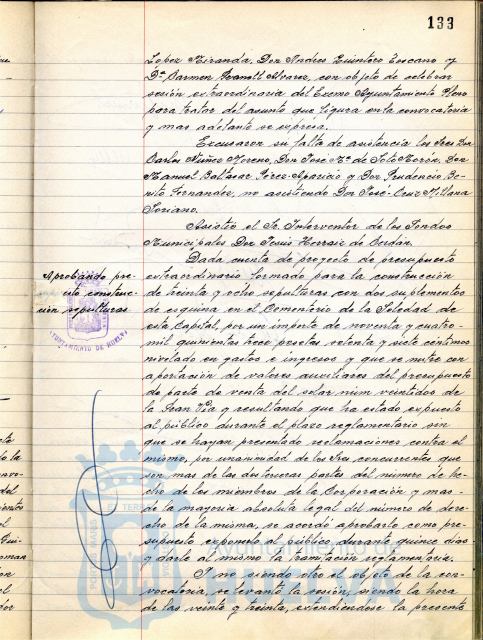 133
Lopez Miranda, Don Andres Quintero Toscano y
Dª Carmen Ivanoff Alvarez, con objeto de celebrar
sesión extraordinaria del Excmo Ayuntamiento Pleno
para tratar del asunto que figura en la convocatoria
y mas adelante se expresa.
Excusaron su falta de asistencia los Sres Don
Carlos Núñez Moreno, Don José Mª de Soto Morón, Don
Manuel Baltasar Pérez-Aparicio y Don Prudencio Be-
nito Fernandez, no asistiendo Don José-Cruz Millana
Soriano.
Asistió el Sr. Interventor de los Fondos
Municipales Don Jesús Herraiz de Cerdan.
Dada cuenta de proyecto de presupuesto
Aprobando pre-
sto construc-
ción sepulturas
AYUNTAMIENTO DE HUELVA
extraordinario formado para la construcción
de treinta y ocho sepulturas con dos suplementos
de esquina en el Cementerio de la Soledad de
esta Capital, por un importe de noventa y cuatro-
mil quinientas trece pesetas setenta y siete centimos
nivelado en gastos e ingresos y que se nutre con
aportación de valores auxiliares del presupuesto
de parte de venta del solar núm veintidos de
la Gran Vía y resultando que ha estado expuesto
al público durante el plazo reglamentario sin
que se hayan presentado reclamaciones contra el
mismo, por unanimidad de los Sres. concurrentes que
son mas de las dos terceras partes del número de he-
cho de los miembros de la Corporación y mas-
de la mayoria absoluta legal del número de dere-
cho de la misma, se acordó aprobarlo como pre-
supuesto exponerlo al público, durante quince dias
y darle al mismo la tramitación reglamentaria.
Y no siendo otro el objeto de la con-
vocatoria, se levantó la sesión, siendo la hora
de las veinte y treinta, extendiéndose la presente